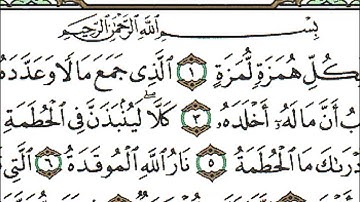 بِسْمِ اللَّهِ الرَّحْمَٰنِ الرَّحِيمِ
كُلِّ هُمَزَةٍ لُّمَزَةٍ ١ الَّذِي جَمَعَ مَالًا وَعَدَّدَهُ
أَنَّ مَالَهُ أَخْلَدَهُ ٣ كَلَّا لَيُنۢبَذَنَّ فِي الْحُطَمَةِ
مَا الْحُطَمَةُ ٥ نَارُ اللَّهِ الْمُوقَدَةُ ٦ الَّتِي